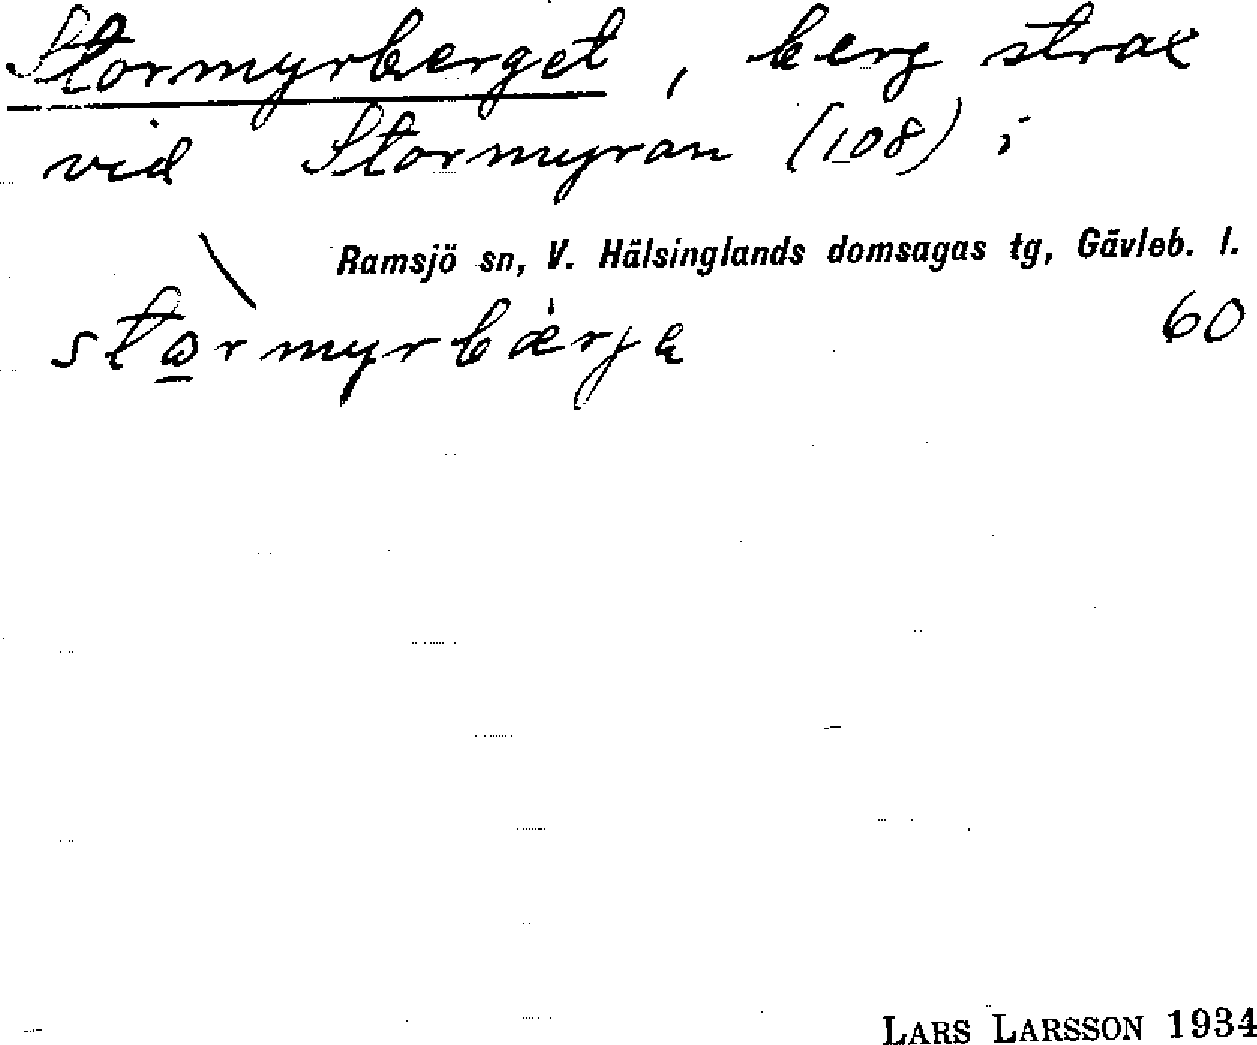 Stormyrberget, berg strax
vid Stormyran (108) i
Ramsjö sn, V. Hälsinglands domsagas tg, Gävleb. l.
sto̲rmyrbærjɐ 60
LARS LARSSON 1934